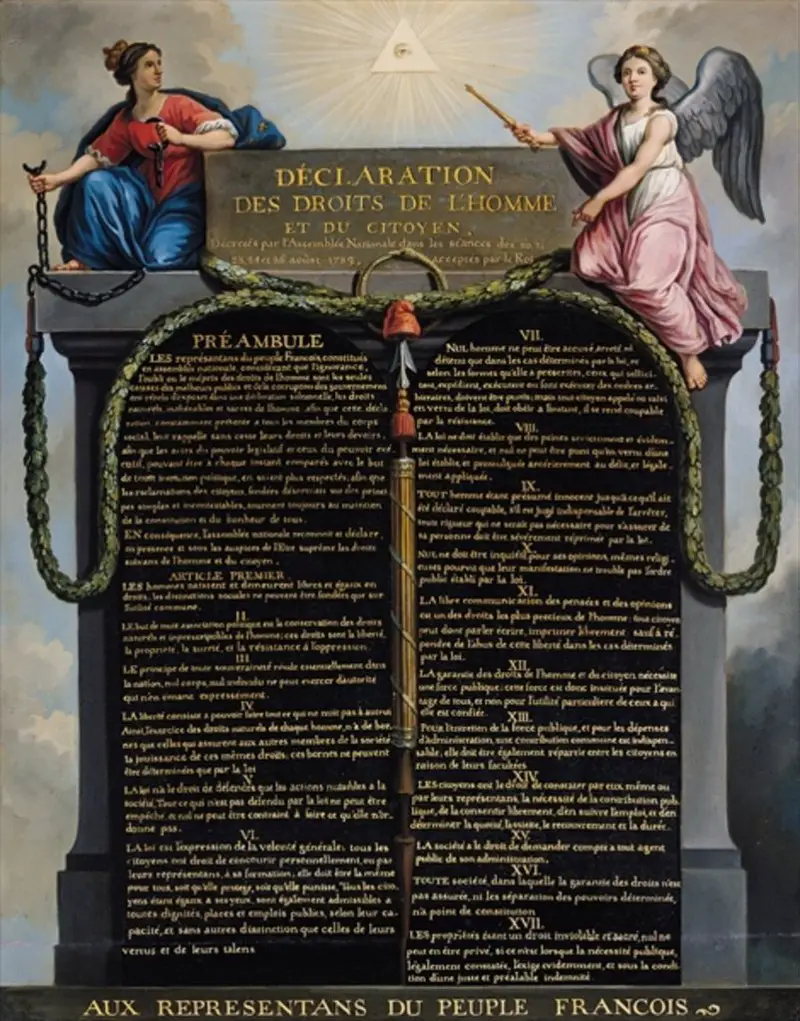 DÉCLARATION
DES DROITS DE L'HOMME
ET DU CITOYEN,
Décretés par l'Assemblée Nationale dans les séances des 20, 21
23, 24 et 26 août 1789, acceptés par le Roi
PRÉAMBULE
LES représentans du peuple François, constitués
en assemblée nationale, considérant que l'ignorance,
l'oubli ou le mépris des droits de l'homme sont les seules
causes des malheurs publics et de la corruption des gouvernemens
ont résolu d'exposer dans une déclaration solemnelle, les droits
naturels, inaliénables et sacrés de l'homme, afin que cette décla
ration constamment présente a tous les membres du corps
social, leur rappelle sans cesse leurs droits et leurs devoirs,
afin que les actes du pouvoir législatif et ceux du pouvoir exé
cutif, pouvant être a chaque instant comparés avec le but
de toute institution politique, en soient plus respectés; afin que
les réclamations des citoyens, fondées désormais sur des princi
pes simples et incontestables, tournent toujours au maintien
de la constitution et du bonheur de tous.
EN conséquence, l'assemblée nationale reconnoit et déclare,
en presence et sous les auspices de l'Etre suprême les droits
suivans de l'homme et du citoyen.
ARTICLE PREMIER.
LES hommes naissent et demeurent libres et égaux en
droits, les distinctions sociales ne peuvent être fondées que sur
l'utilité commune.
II.
LE but de toute association politique est la conservation des droits
naturels et imprescriptibles de l'homme; ces droits sont la liberté,
la propriété, la sureté, et la résistance à l'oppression.
III
LE principe de toute souveraineté réside essentiellement dans
la nation, nul corps, nul individu ne peut exercer d'autorité
qui n'en émane expressément.
IV.
LA liberté consiste a pouvoir faire tout ce qui ne nuit pas à autrui
Ainsi, l'exercice des droits naturels de chaque homme, n'a de bor
nes que celles qui assurent aux autres membres de la société
la jouissance de ces mêmes droits; ces bornes ne peuvent
être déterminées que par la loi
V.
LA loi n'a le droit de défendre que les actions nuisibles a la
société. Tout ce qui n'est pas défendu par la loi ne peut être
empêché, et nul ne peut être contraint à faire ce qu'elle n'or
donne pas.
VI.
LA loi est l'expression de la volonté générale; tous les
citoyens ont droit de concourir personnellement, ou par
leurs représentans, à sa formation; elle doit être la même
pour tous, soit qu'elle protege, soit qu'elle punisse, Tous les cito
yens étant égaux a ses yeux, sont également admissibles a
toutes dignités, places et emplois publics, selon leur ca-
pacité, et sans autres distinction que celles de leurs
vertus et de leurs talens
VII.
NUL homme ne peut être accusé, arreté, ni
détenu que dans les cas déterminés par la loi, et
selon les formes qu'elle a prescrites, ceux qui sollici
tent, expédient, exécutent ou font exécuter des ordres ar-
bitraires, doivent être punis; mais tout citoyen appelé ou saisi
en vertu de la loi, doit obéir a l'instant, il se rend coupable
par la résistance.
VIII.
LA loi ne doit établir que des peines strictement et évidem-
ment nécessaire, et nul ne peut être puni qu'en vertu d'une
loi établie, et promulguée antérierement au délit, et légale
ment appliquée.
IX.
TOUT homme étant présumé innocent jusqu'à ce qu'il ait
été déclaré coupable, s'il est jugé indispensable de l'arrêter,
toute rigueur qui ne serait pas nécessaire pour s'assurer de
sa personne doit être sévèrement réprimée par la loi.
X.
NUL ne doit être inquiété pour ses opinions, mêmes religi
euses pourvu que leur manifestation ne trouble pas l'ordre
public établi par la loi.
XI.
LA libre communication des pensées et des opinions
est un des droits les plus precieux de l'homme: tout citoyen
peut dont parler écrire, imprimer librement: sauf à ré
pondre de l'abus de cette liberté dans les cas déterminés
par la loi.
XII.
LA garantie des droits de l'homme et du citoyen nécessite
une force publique: cette force est donc instituée pour l'avan
tage de tous, et non pour l'utilité particuliere de ceux a qui
elle est confiée.
XIII.
Pour l'entretien de la force publique, et pour les dépenses
d'administration, une contribution commune est indispen-
sable; elle doit être également répartie entre les citoyens en
raison de leurs facultées
XIV.
LES citoyens ont le droit de constater par eux même ou
par leurs représentans, la nécessité de la contribution pub-
lique, de la consentir librement, d'en suivre l'emploi, et d'en
déterminer la quotité, l'assiette, le recouvrement et la durée.
XV.
LA société a le droit de demander compte a tout agent
public de son administration.
XVI.
TOUTE société, dans laquelle la garantie des droits n'est
pas assurée, ni les séparation des pouvoirs déterminée,
n'a point de constitution
XVII.
LES propriétés étant un droit inviolable et sacré, nul ne
peut en être privé, si ce n'est lorsque la nécessité publique,
légalement constatée, l'exige évidemment, et sous la condi
tion d'une juste et préalable indemnité.
AUX REPRESENTANS DU PEUPLE FRANCOIS